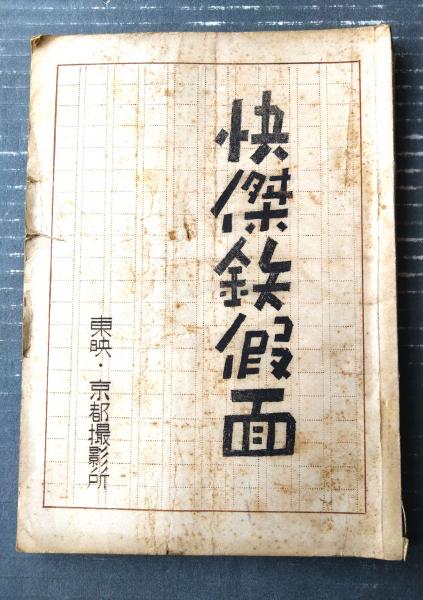 快傑鉄假面
東映・京都撮影所